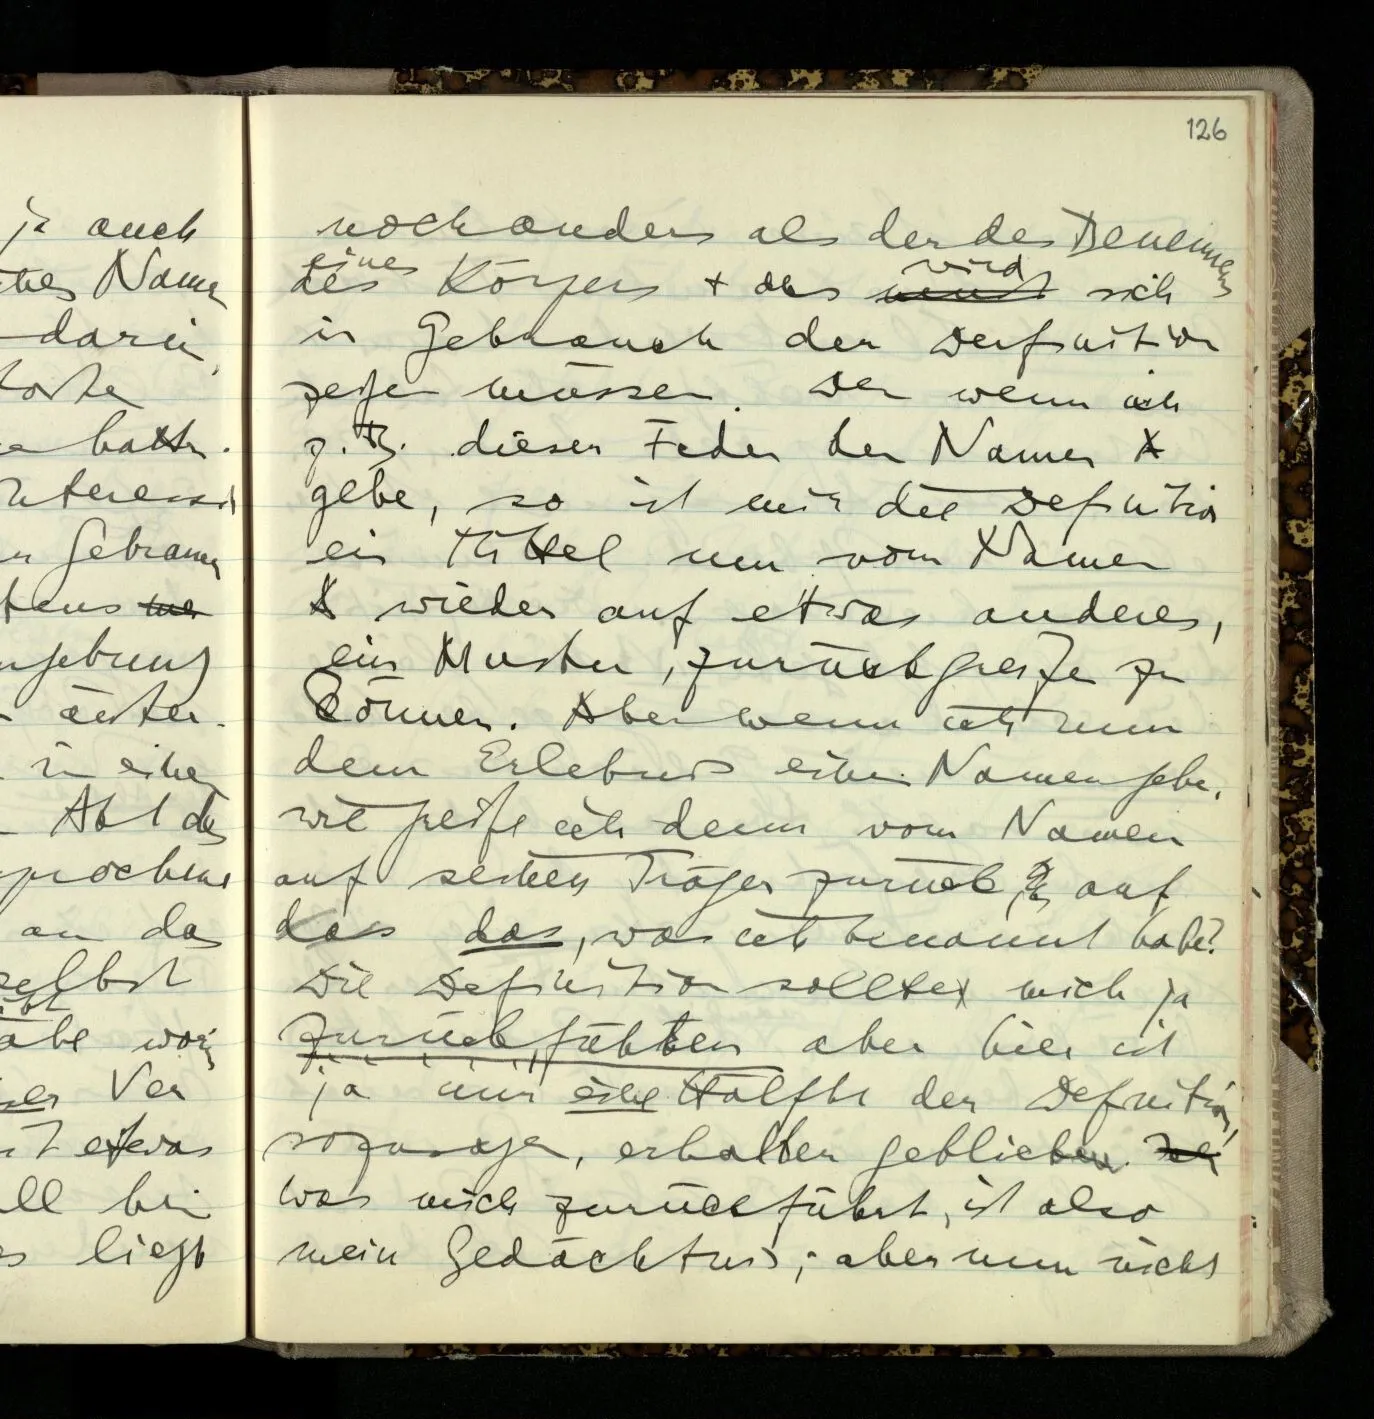 126
ja auch
Name
darin,
hatte.
Interessa
Gebrauch
tens me
ngebung
in einer
Akt des
sprochene
an das
selbst
habe wor
Ver
etwas
all bei
es liegt
noch anders als der des Benennens
eines
des Körpers + das wird
muß sich
im Gebrauch der Definition
zeigen müssen. Den wenn ich
z.B. dieser Feder den Namen A
gebe, so ist mir die Definition
ein Mittel um vom Namen
A wieder auf etwas anderes,
ein Muster, zurückgreifen zu
können. Aber wenn ich nun
dem Erlebnis einen Namen gebe,
wie greife ich denn vom Namen
auf seinen Träger zurück, auf
das das, was ich benannt habe?
Die Definition sollte mich ja
zurückführen aber hier ist
ja nur eine Hälfte der Definition,
sozusagen, erhalten geblieben.
was mich zurückführt, ist also
mein Gedächtnis; aber nun nicht